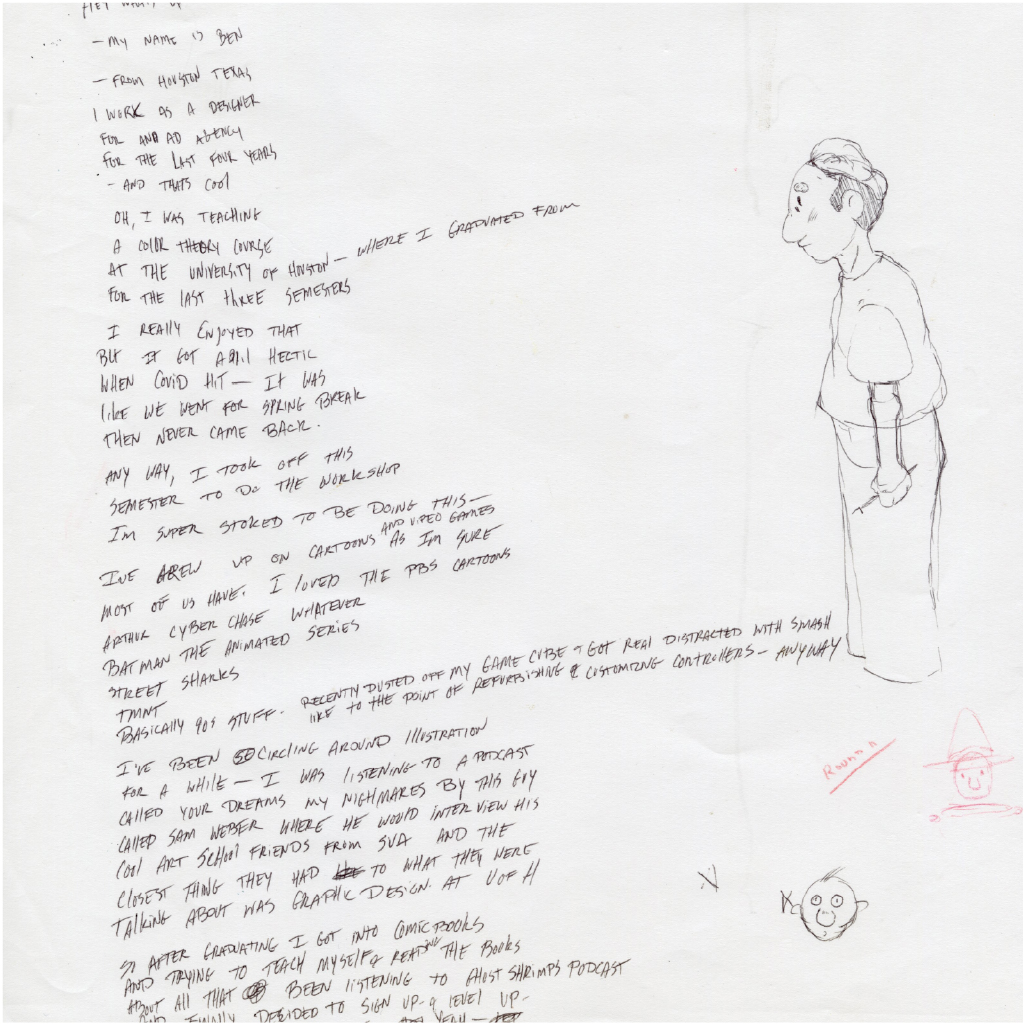 HEY WHATS UP
— MY NAME IS BEN
— FROM HOUSTON TEXAS
I WORK AS A DESIGNER
FOR AND AD AGENCY
FOR THE LAST FOUR YEARS
— AND THATS COOL
OH, I WAS TEACHING
A COLOR THEORY COURSE
AT THE UNIVERSITY OF HOUSTON — WHERE I GRADUATED FROM
FOR THE LAST THREE SEMESTERS
I REALLY ENJOYED THAT
BUT IT GOT HECTIC
WHEN COVID HIT — IT WAS
LIKE WE WENT FOR SPRING BREAK
THEN NEVER CAME BACK.
ANY WAY, I TOOK OFF THIS
SEMESTER TO DO THE WORKSHOP
I'M SUPER STOKED TO BE DOING THIS —
I'VE GREW UP ON CARTOONS AND VIDEO GAMES AS IM SURE
MOST OF US HAVE. I LOVED THE PBS CARTOONS
ARTHUR CYBER CHASE WHATEVER
BATMAN THE ANIMATED SERIES
STREET SHARKS
TMNT
BASICALLY 90s STUFF. RECENTLY DUSTED OFF MY GAME CUBE & GOT REAL DISTRACTED WITH SMASH
LIKE TO THE POINT OF REFURBISHING & CUSTOMIZING CONTROLLERS — ANYWAY
I'VE BEEN CIRCLING AROUND ILLUSTRATION
FOR A WHILE — I WAS LISTENING TO A PODCAST
CALLED YOUR DREAMS MY NIGHTMARES BY THIS GUY
CALLED SAM WEBER WHERE HE WOULD INTERVIEW HIS
COOL ART SCHOOL FRIENDS FROM SVA AND THE
CLOSEST THING THEY HAD TO WHAT THEY WERE
TALKING ABOUT WAS GRAPHIC DESIGN. AT U OF H
SO AFTER GRADUATING I GOT INTO COMIC BOOKS
AND TRYING TO TEACH MYSELF & READING THE BOOKS
ABOUT ALL THAT BEEN LISTENING TO GHOST SHRIMPS PODCAST
AND FINALLY DECIDED TO SIGN UP - & LEVEL UP -
YEAH —